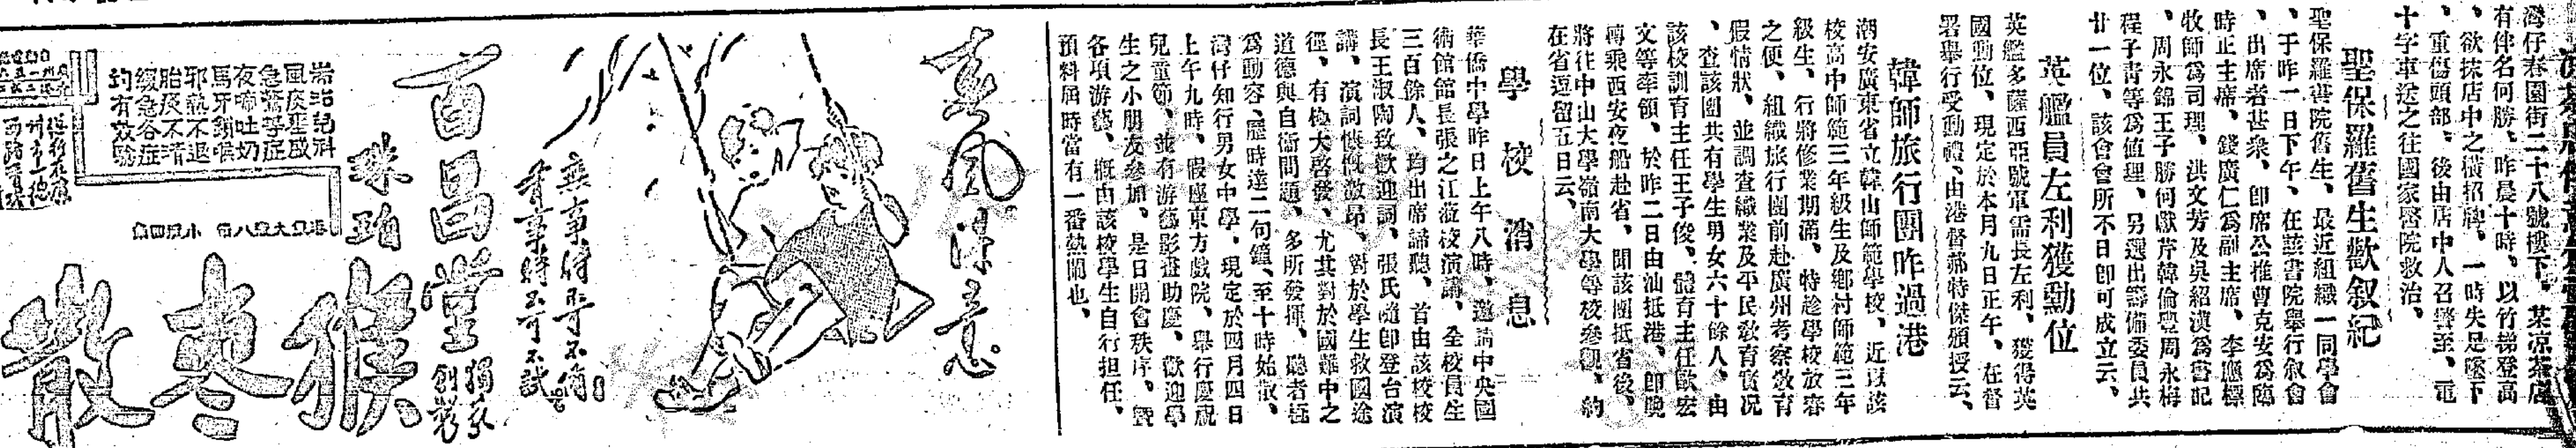 灣仔春園街二十八號樓下、某涼茶店
有伴名何勝、昨晨十時、以竹梯登高
、欲抹店中之橫招牌、一時失足墜下
、重傷頭部、後由店中人召警至、電
十字車送之往國家醫院救治、
聖保羅舊生歡叙紀
聖保羅書院舊生、最近組織一同學會
、于昨一日下午、在該書院舉行叙會
、出席者甚衆、卽席公推曹克安爲臨
時正主席、錢廣仁爲副主席、李應標
牧師爲司理、洪文芳及吳紹漢爲書記
、周永錦王子勝何獻芹韓倫豐周永栂
程子青等爲值理、另選出籌備委員共
廿一位、該會會所不日卽可成立云、
英艦員左利獲勳位
英艦多薩西亞號軍需長左利、獲得英
國勳位、現定於本月九日正午、在督
署舉行受勳禮、由港督郝特傑頒授云、
韓師旅行團昨過港
潮安廣東省立韓山師範學校、近以該
校高中師範三年級生及鄉村師範三年
級生、行將修業期滿、特趁學校放春
之便、組織旅行團前赴廣州考察敎育
假情狀、並調查織業及平民敎育實况
、查該團共有學生男女六十餘人、由
該校訓育主任王子俊、體育主任歐宏
文等率領、於昨二日由汕抵港、卽晚
轉乘西安夜船赴省、聞該團抵省後、
將往中山大學嶺南大學等校參觀、約
在省逗留五日云、
學校消息
華僑中學昨日上午八時、邀請中央國
術館館長張之江蒞校演講、全校員生
三百餘人、均出席諦聽、首由該校校
長王淑陶致歡迎詞、張氏隨卽登台演
講、演詞慷慨激昂、對於學生救國途
徑、有極大啓發、尤其對於國難中之
道德與自衛問題、多所發揮、聽者極
爲動容、歷時達二句鐘、至十時始散、
灣仔知行男女中學、現定於四月四日
上午九時、假座東方戲院、舉行慶祝
兒童節、並有游藝影畫助慶、歡迎學
生之小朋友參加、是日開會秩序、暨
各項游藝、概由該校學生自行担任、
預料屆時當有一番熱鬧也、
春風得意
無事時不可不備
有事時不可不試
百昌堂
獨家
創製
珠珀
猴棗散
耑治兒科
風痰壅盛
急驚等症
夜啼吐奶
馬牙鎖喉
邪熱不退
胎痰不清
緩急各症
均有效驗